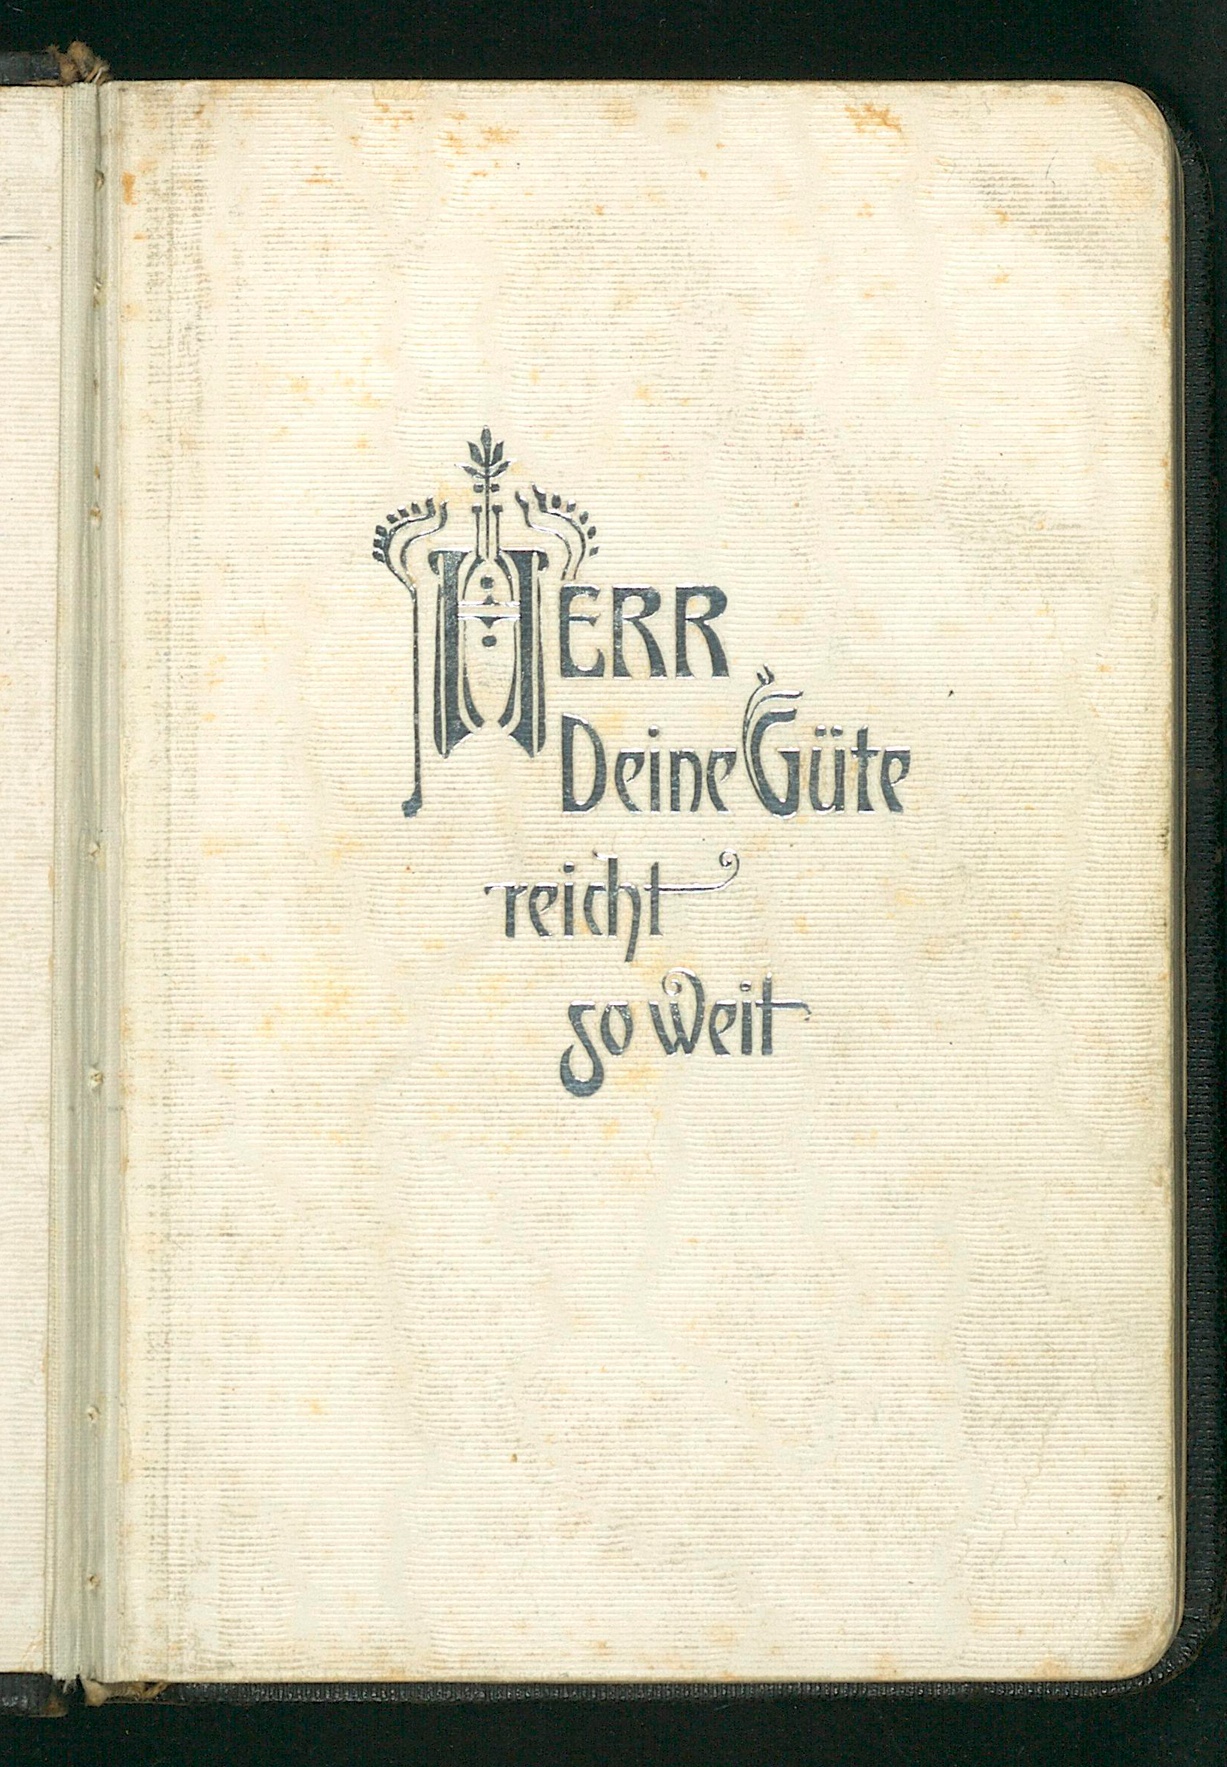 HERR
Deine Güte
reicht
so weit